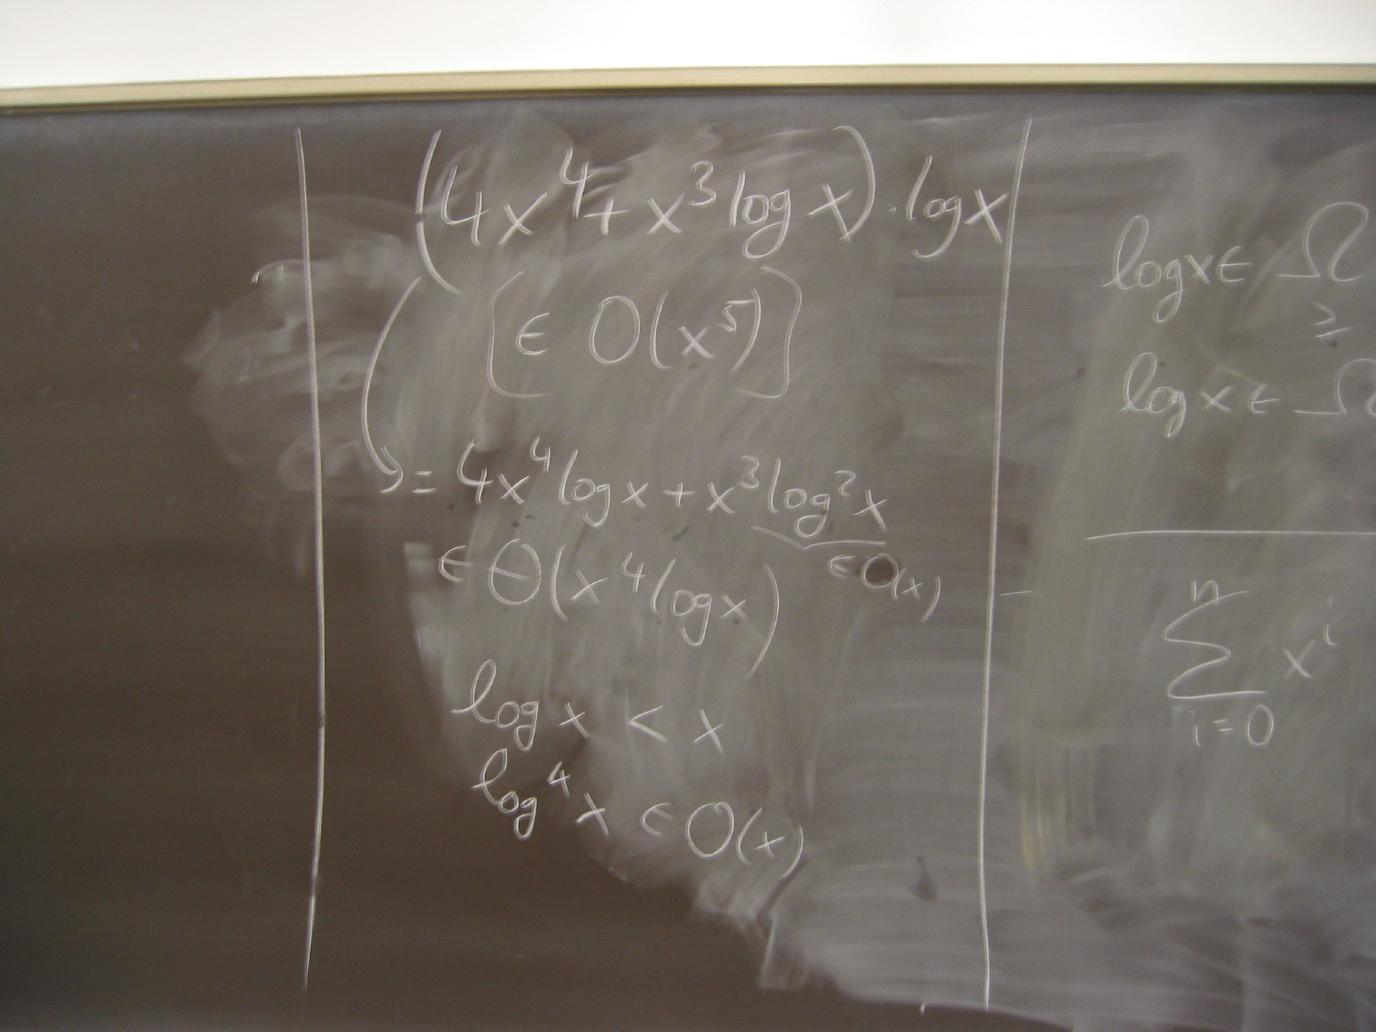 (4x⁴+x³log x)·logx
[∈ O(x⁵)]
= 4x⁴logx + x³log²x
∈ Θ(x⁴logx)
∈O(x)
log x < x
log⁴x ∈ O(x)
logx∈ Ω
≥
logx∈ Ω
n
∑ xⁱ
i=0